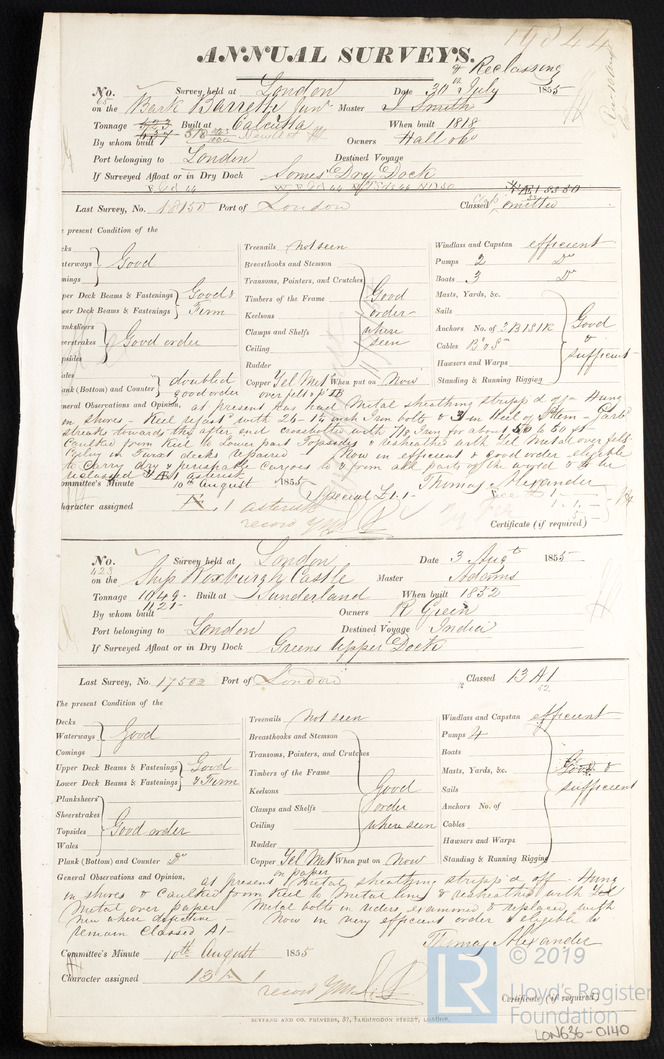 19844
ANNUAL SURVEYS.
& Reclassing
No. 65 Survey held at London Date 30th July 1855
on the Bark Barretto Junr Master J Smith
Tonnage 423 437 Built at Calcutta When built 1818
By whom built Owners Hall & Co
Port belonging to London Destined Voyage
If Surveyed Afloat or in Dry Dock Somes Dry Dock
Last Survey, No. 18150 Port of London Classed, omitted
e present Condition of the
cks
aterways } Good
mings
per Deck Beams & Fastenings } Good &
wer Deck Beams & Fastenings } Firm
anksheers
eerstrakes } Good order
opsides
ales
ank (Bottom) and Counter } doubled good order
Treenails not seen
Breasthooks and Stemson
Transoms, Pointers, and Crutches
Timbers of the Frame } Good
Keelsons order
Clamps and Shelfs where
Ceiling seen
Rudder
Copper Yel Met When put on Now
over felt
Windlass and Capstan efficient
Pumps 2 Do
Boats 3 Do
Masts, Yards, &c.
Sails
Anchors No. of 2B 1S 1K } Good
Cables &
Hawsers and Warps sufficient
Standing & Running Rigging
neral Observations and Opinion, at present has had Metal sheathing stripp'd off - Hung
in shores - Keel refast'd with 26 - inch Iron bolts & 3 in Heel of Stem -
streaks towards after end crossbolted with 7/8 Iron for about 50 to 60 ft
Caulked from Keel to Lower part Topsides & resheathed with Yel Metal over felt
decks repaired Now in efficient & good order eligible
to Carry dry & perishable Cargoes to & from all parts of the world & to be
reclassed Æ 1 asterisk Thomas Alexander
ommittee's Minute 10th August 1855 Special £1.1-
haracter assigned Æ 1 asterisk
record Certificate (if required)
No. 423 Survey held at London Date 3 Augt 1855
on the Ship Roxburgh Castle Master Adams
Tonnage 1049 1121 Built at Sunderland When built 1852
By whom built Owners R Green
Port belonging to London Destined Voyage India
If Surveyed Afloat or in Dry Dock Greens Upper Dock
Last Survey, No. 17502 Port of London Classed 13 A 1
52
The present Condition of the
Decks
Waterways } Good
Comings
Upper Deck Beams & Fastenings } Good
Lower Deck Beams & Fastenings } & Firm
Planksheers
Sheerstrakes
Topsides } Good order
Wales
Plank (Bottom) and Counter Do
Treenails not seen
Breasthooks and Stemson
Transoms, Pointers, and Crutches
Timbers of the Frame
Keelsons } Good
Clamps and Shelfs order
Ceiling where seen
Rudder
Copper Yel Met When put on Now
on paper
Windlass and Capstan efficient
Pumps 4
Boats
Masts, Yards, &c. Good &
Sails sufficient
Anchors No. of
Cables
Hawsers and Warps
Standing & Running Rigging
General Observations and Opinion, at present Metal sheathing stripp'd off - Hung
in shores & Caulked from Keel to Metal line & resheathed with Yel
Metal over paper Metal bolts in riders examined & replaced with
new where defective - Now in very efficient order & eligible to
remain Classed A1 -
Thomas Alexander
Committee's Minute 10th August 1855
Character assigned 13 A 1
record
Certificate (if required)
SEYFANG AND CO. PRINTERS, 57, FARRINGDON STREET, London.
© 2019
LR
Lloyd's Register
Foundation
LON636-0140